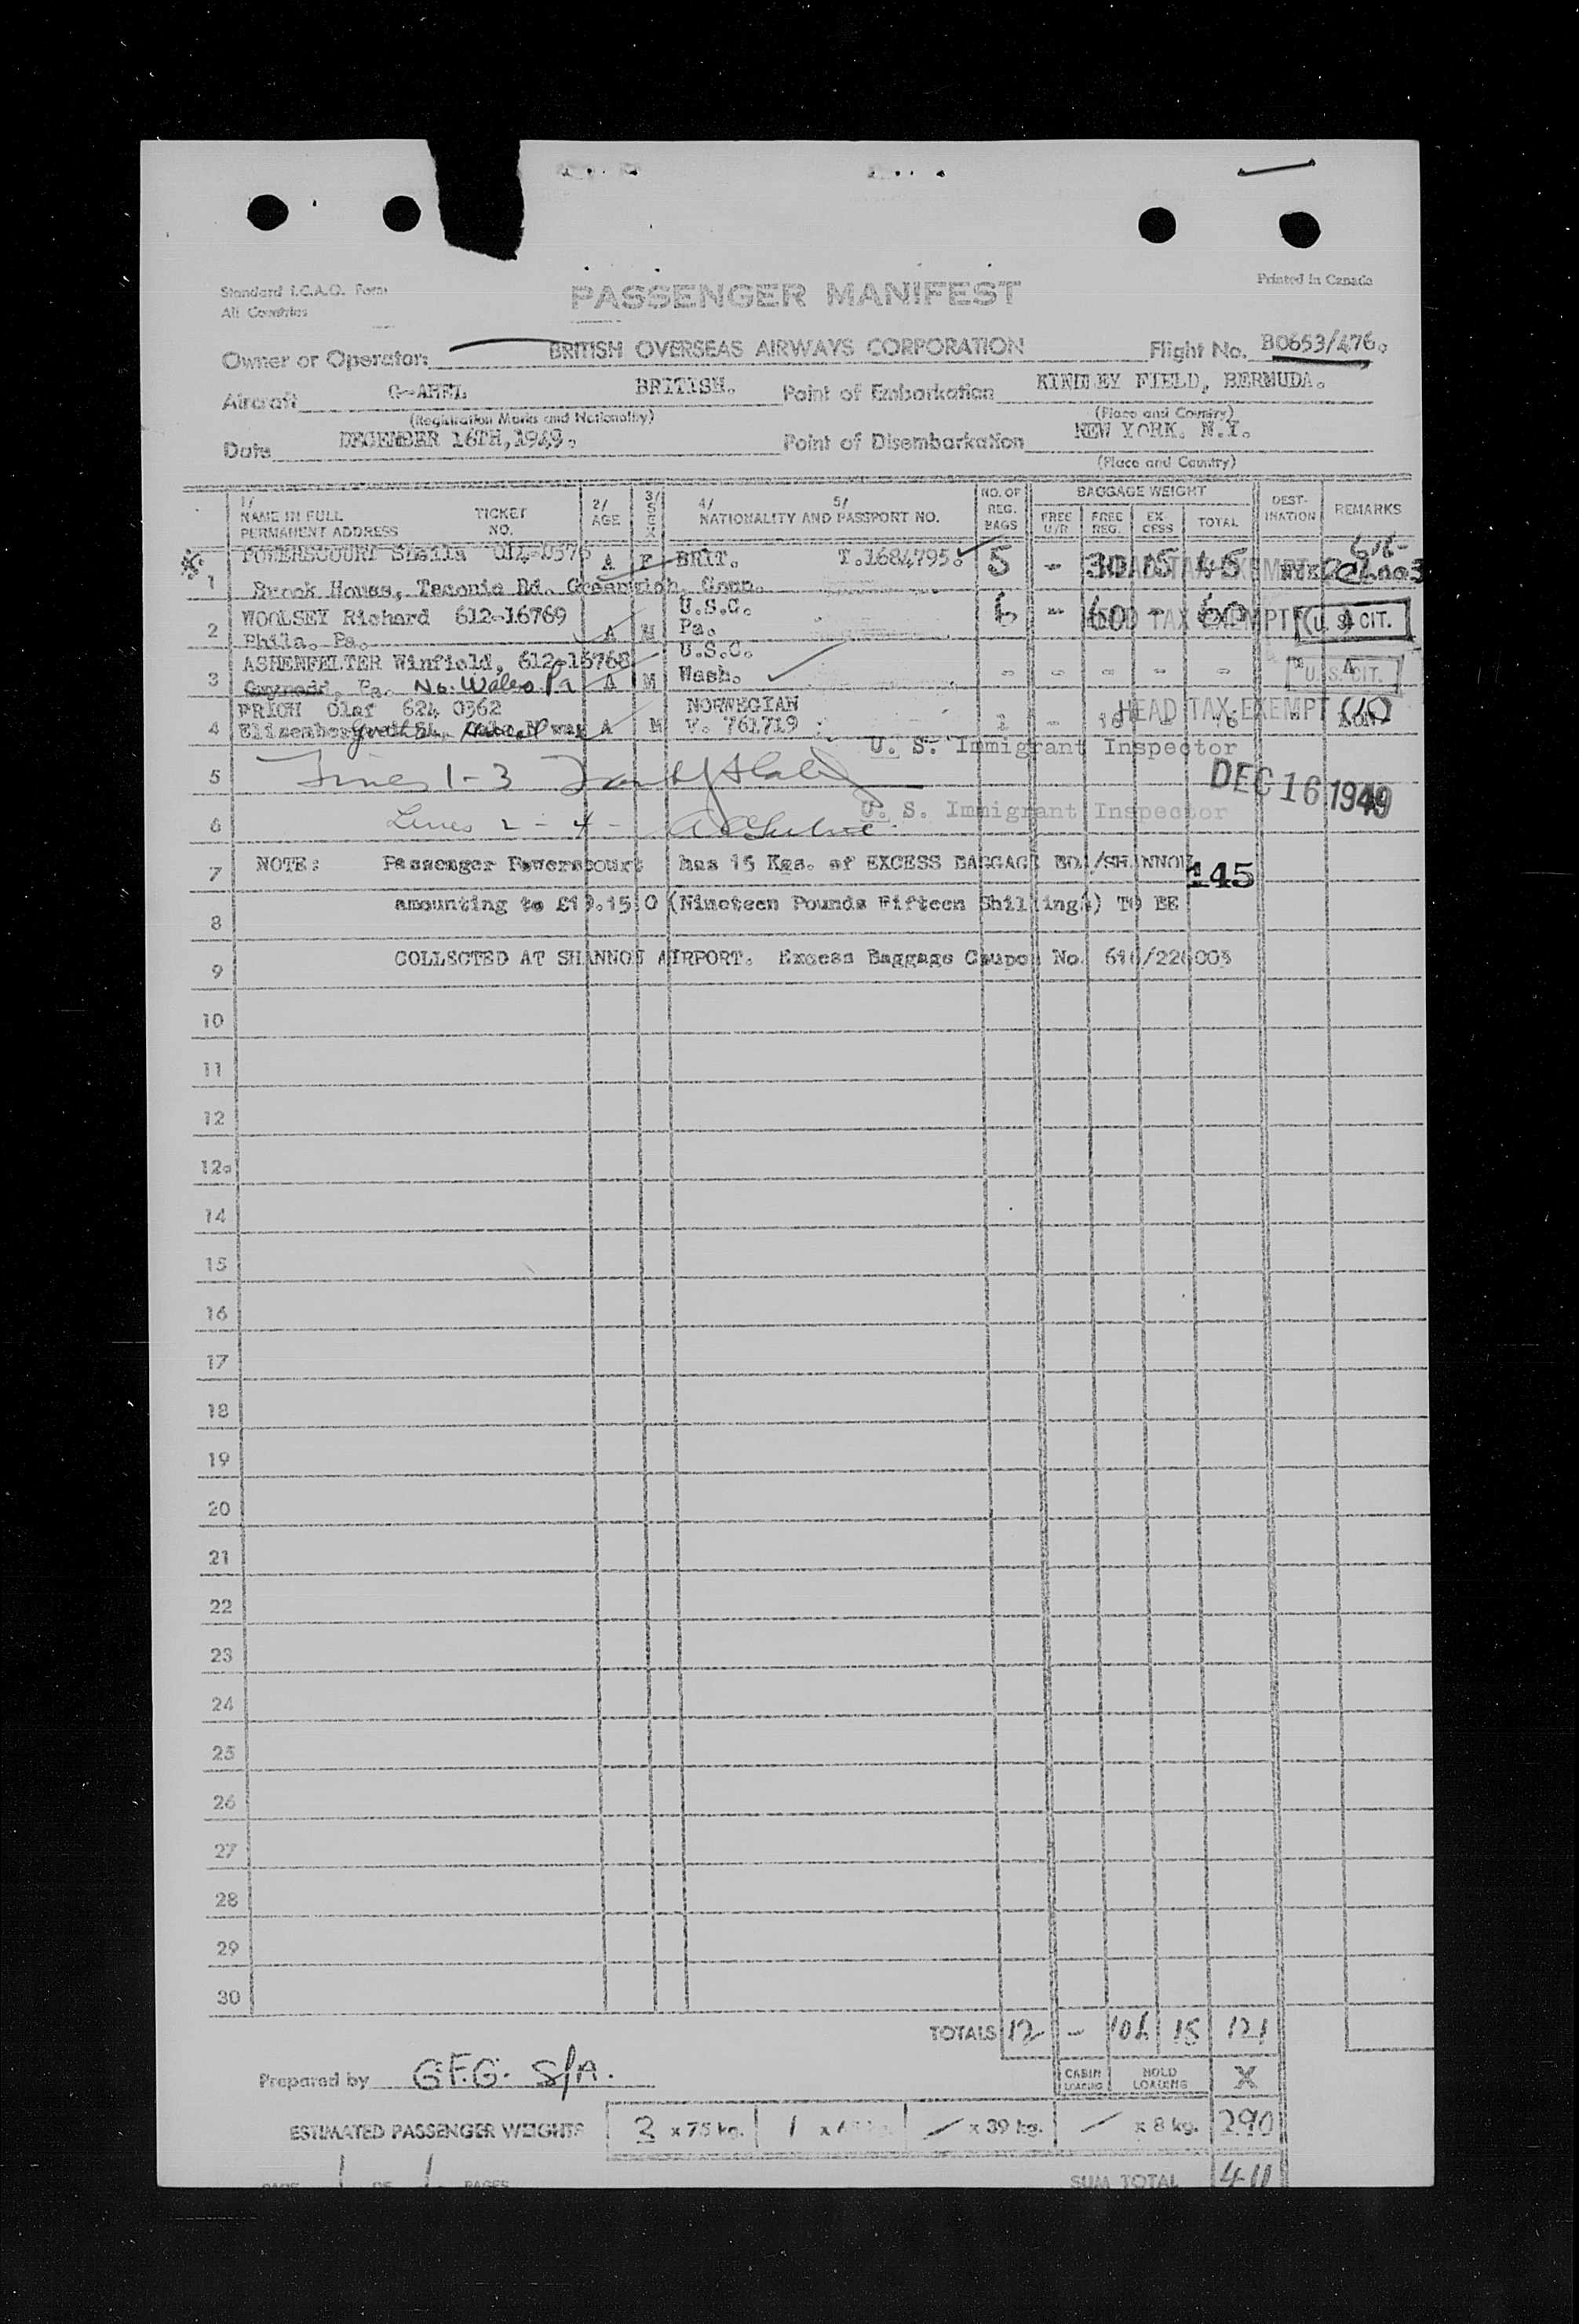 Standard I.C.A.O. Form
All Countries
PASSENGER MANIFEST
Printed in Canada
Owner or Operator: BRITISH OVERSEAS AIRWAYS CORPORATION Flight No. B0653/476.
Aircraft G-AHEL BRITISH. Point of Embarkation KINDLEY FIELD, BERMUDA.
(Registration Marks and Nationality) (Place and Country)
Date DECEMBER 16TH, 1949. Point of Disembarkation NEW YORK. N.Y.
(Place and Country)
1/ NAME IN FULL PERMANENT ADDRESS TICKET NO. 2/ AGE 3/ SEX 4/ 5/ NATIONALITY AND PASSPORT NO. NO. OF REG. BAGS BAGGAGE WEIGHT FREE U/R FREE REG. EXCESS TOTAL DESTINATION REMARKS
POWERSCOURT Sheila 014-0376 A F BRIT. T.1684795. 5 - 30 15 45 HEAD TAX EXEMPT
1 Rd. Greenwich, Conn.
WOOLSEY Richard 612-16769 U.S.C. 6 - 60 - 60 HEAD TAX EXEMPT U. S. CIT.
2 Phila. Pa. A M Pa.
ASHENFELTER Winfield, 612-16768 U.S.C.
3 Gwynedd, Pa. No. Wales Pa A M Wash. - - - - - U. S. CIT.
PRICH Olaf 624 0362 NORWEGIAN HEAD TAX EXEMPT
4 A M V. 761719 1 - 16 - 16
U. S. Immigrant Inspector
5 Lines 1-3
DEC 16 1949
U. S. Immigrant Inspector
6 Lines 2 - 4 -
7 NOTE: Passenger Powerscourt has 15 Kgs. of EXCESS BAGGAGE BDA/SHANNON
145
8 amounting to £19.15.0 (Nineteen Pounds Fifteen Shillings) TO BE
9 COLLECTED AT SHANNON AIRPORT. Excess Baggage Coupon No. 616/226003
10
11
12
12a
14
15
16
17
18
19
20
21
22
23
24
25
26
27
28
29
30
TOTALS 12 - 106 15 121
Prepared by G.F.G. S/A. CABIN LOADING HOLD LOADING X
ESTIMATED PASSENGER WEIGHTS 3 x 75 kg. 1 x x 39 kg. x 8 kg. 290
PAGE 1 OF 1 PAGES SUM TOTAL 411